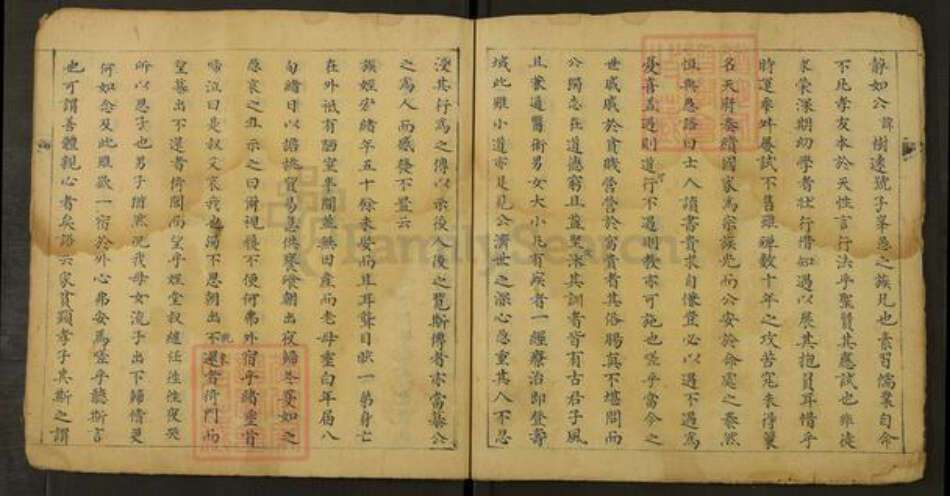 靜如公諱樹逵號子峯愚之族兄也素習儒業自命
不凡孝友本於天性言行法乎聖賢其應試也雖後
家榮深期幼學者壯行惜知遇以展其抱負耳惜乎
時運乖舛屢試不售雖禪數十年之攻苦究未得業
名天府奏績國家爲宗族光而公安於命處之泰然
恒無慍語曰士人讀書貴求自慊豈必以遇不遇爲
憂喜哉遇則道行不遇則教亦可施也嗟乎當今之
世戚戚於貧賤營營於富貴者其俗腸莫不堪問而
公獨志在道德窮且益堅涿其訓者皆有古君子風
且兼通醫術男女大小凡有疾者一經療治即登壽
域此雖小道亦足見公濟世之深心愚重其人不忍
沒其行爲之傳以示後人後之覽斯傳者亦當慕公
之爲人而感發不置云
族姪宏緒年五十餘未娶而且耳聾目眇一弟身亡
在外祇有陋室半間並無田產而老母壺白年届八
旬緒日以擔挑貿易悉供饔飧朝出夜歸冬夏如之
愚哀之且示之曰爾視聽不便何弗外宿乎緒垂首
啼泣曰是叔父哀我也獨不思朝出不還者倚門而
晚來
望暮出不還者倚閭而望乎姪堂叔緒任性夜哭
所以思子也男子猶然況我母女流乎出下歸情更
何如念及此雖欲一宿於外心弗安焉嗟乎聽斯言
也可謂善體親心者矣語云家貧顯孝子其斯之謂
FamilySearch